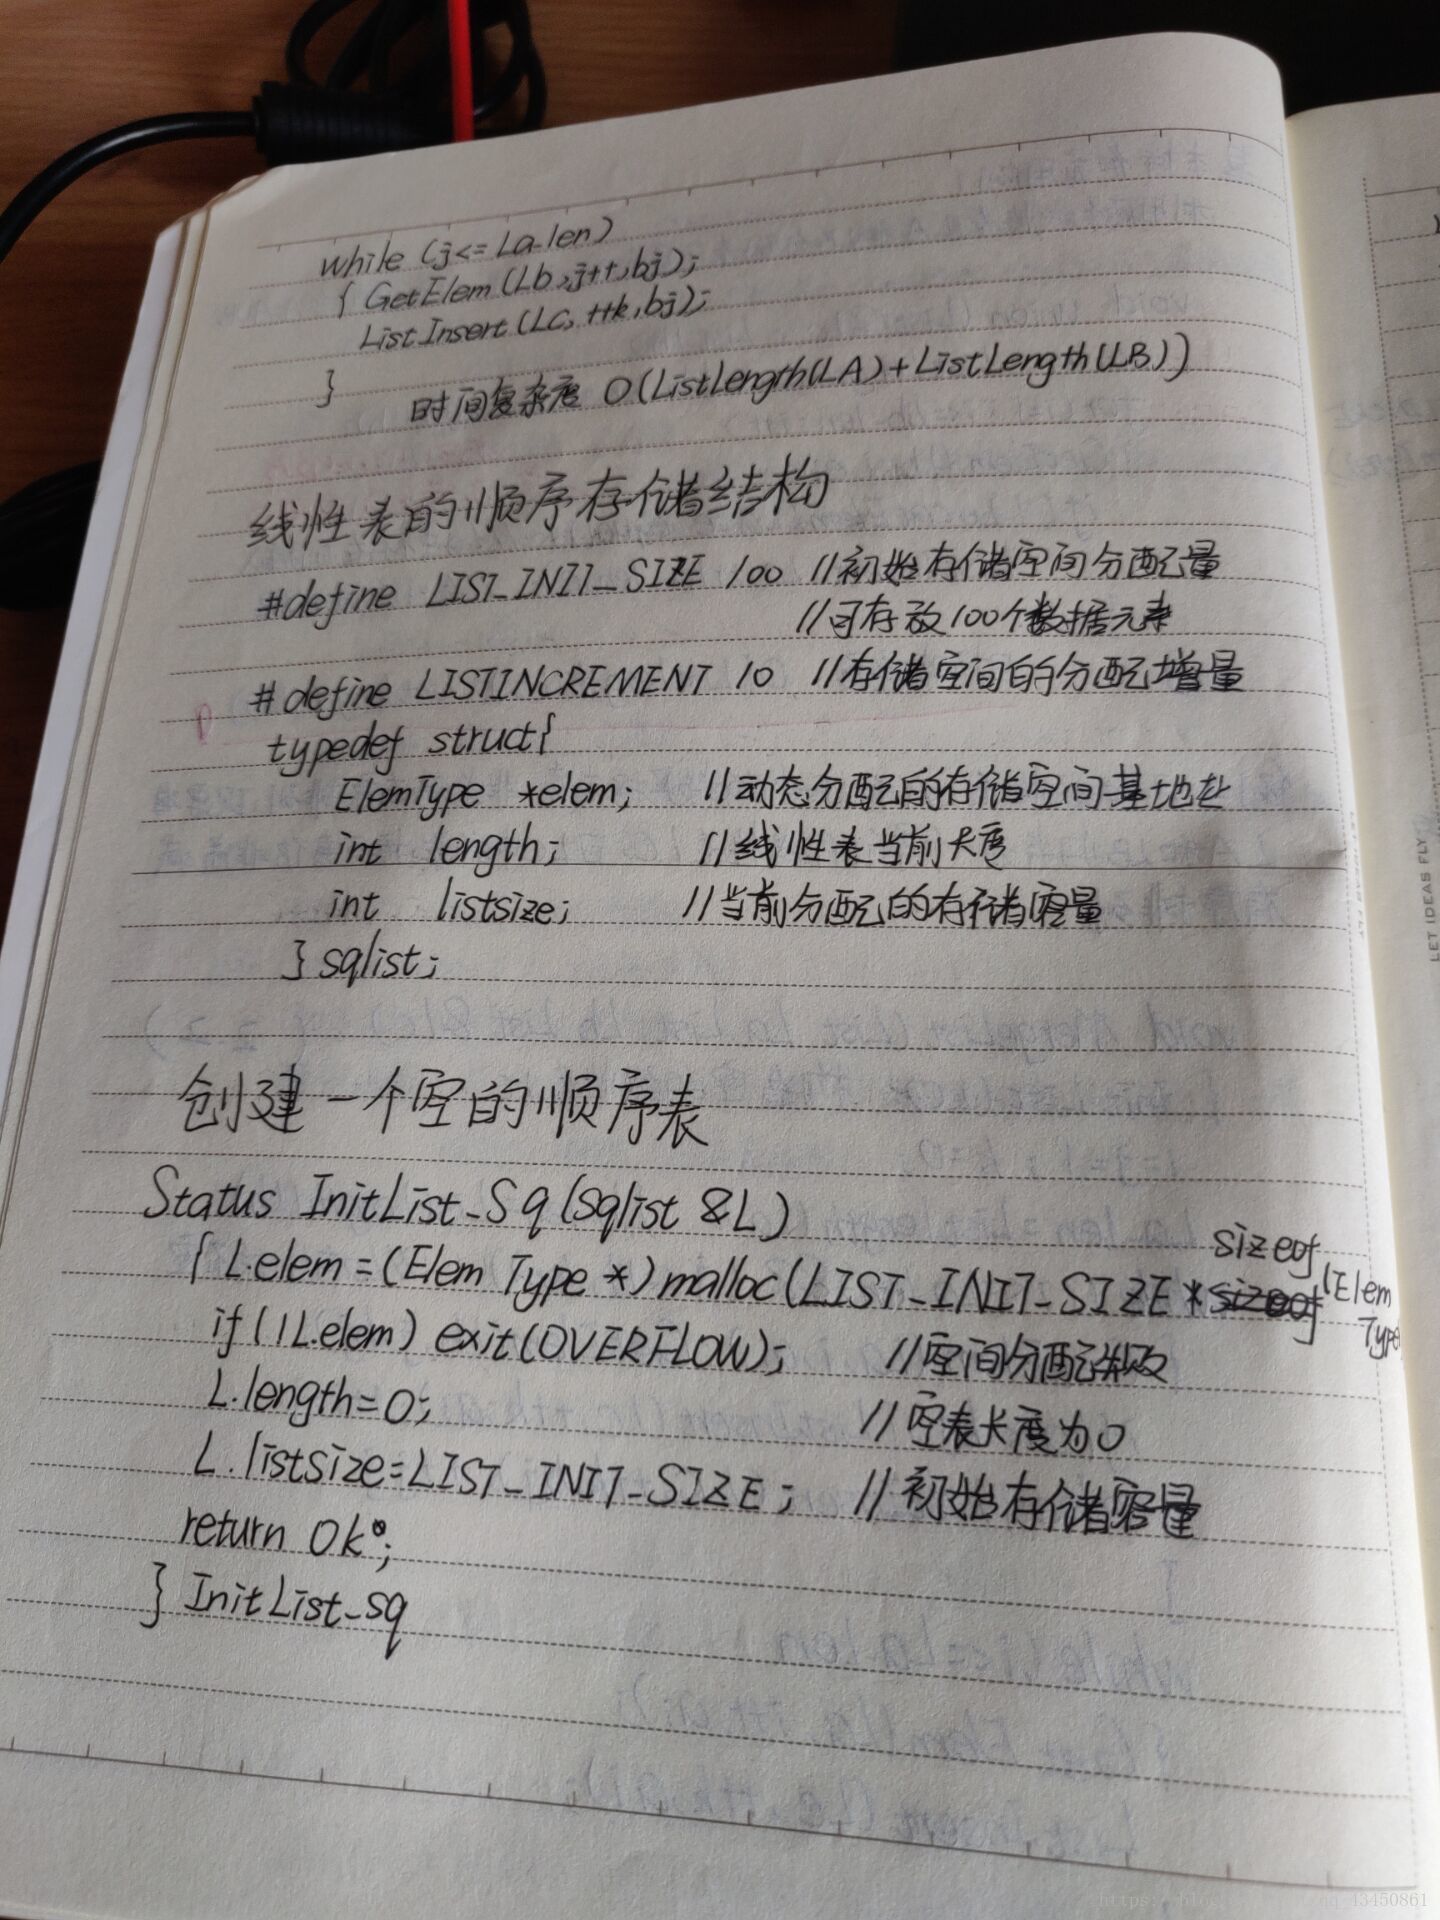 while (j<= La-len)
{ GetElem(Lb,j++,bj);
ListInsert(Lc, ++k,bj);
}
时间复杂度 O(ListLength(LA)+ListLength(LB))
线性表的顺序存储结构
#define LIST_INIT_SIZE 100 //初始存储空间分配量
//可存放100个数据元素
#define LISTINCREMENT 10 //存储空间的分配增量
typedef struct{
ElemType *elem; //动态分配的存储空间基地址
int length; //线性表当前长度
int listsize; //当前分配的存储容量
} sqlist;
创建一个空的顺序表
Status InitList_Sq(Sqlist &L)
{ L.elem=(Elem Type *)malloc(LIST_INIT_SIZE *sizeof(Elem Type
if(!L.elem) exit(OVERFLOW); //空间分配失败
L.length=0; //空表长度为0
L.listsize=LIST_INIT_SIZE; //初始存储容量
return Ok;
} InitList_sq
LET IDEAS FLY
43450861